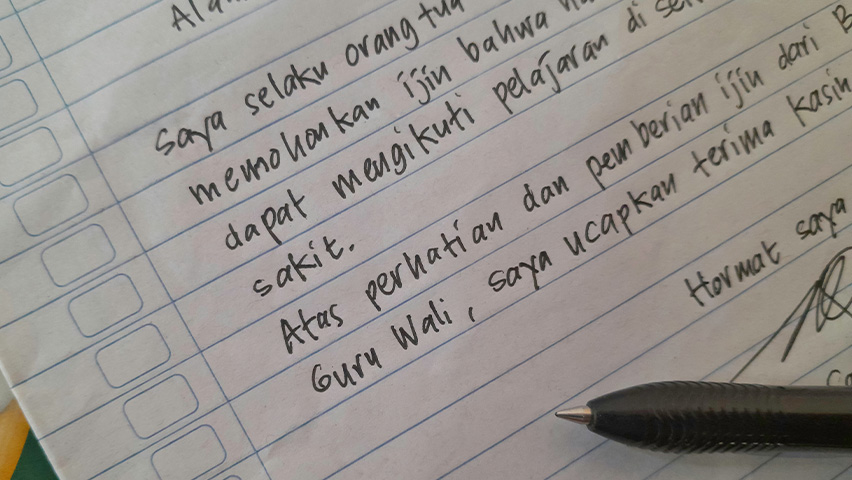 saya selaku orang tua
memohonkan ijin bahwa
dapat mengikuti pelajaran di
sakit.
Atas perhatian dan pemberian ijin dari
Guru Wali, saya ucapkan terima kasih
Hormat saya